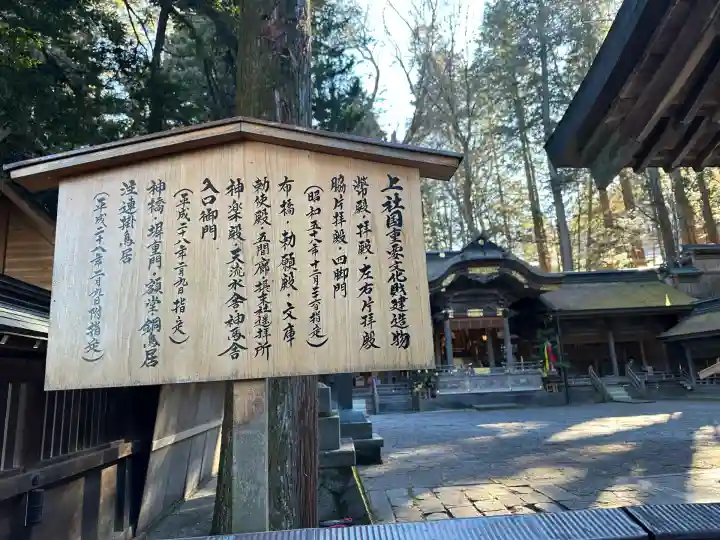 上社国重要文化財建造物
幣殿・拝殿・左右片拝殿
脇片拝殿・四脚門
（昭和五八年十二月二六日指定）
布橋・勅願殿・文庫
勅使殿・五間廊・摂末社遥拝所
神楽殿・天流水舎・神馬舎
入口御門
（平成二八年二月九日指定）
神橋・堤重門・額堂・銅鳥居
注連掛鳥居
（平成二八年二月九日附指定）